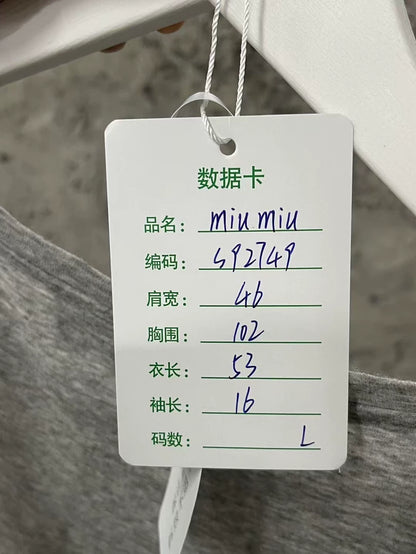 数据卡
品名：miu miu
编码：592749
肩宽：46
胸围：102
衣长：53
袖长：16
码数：L